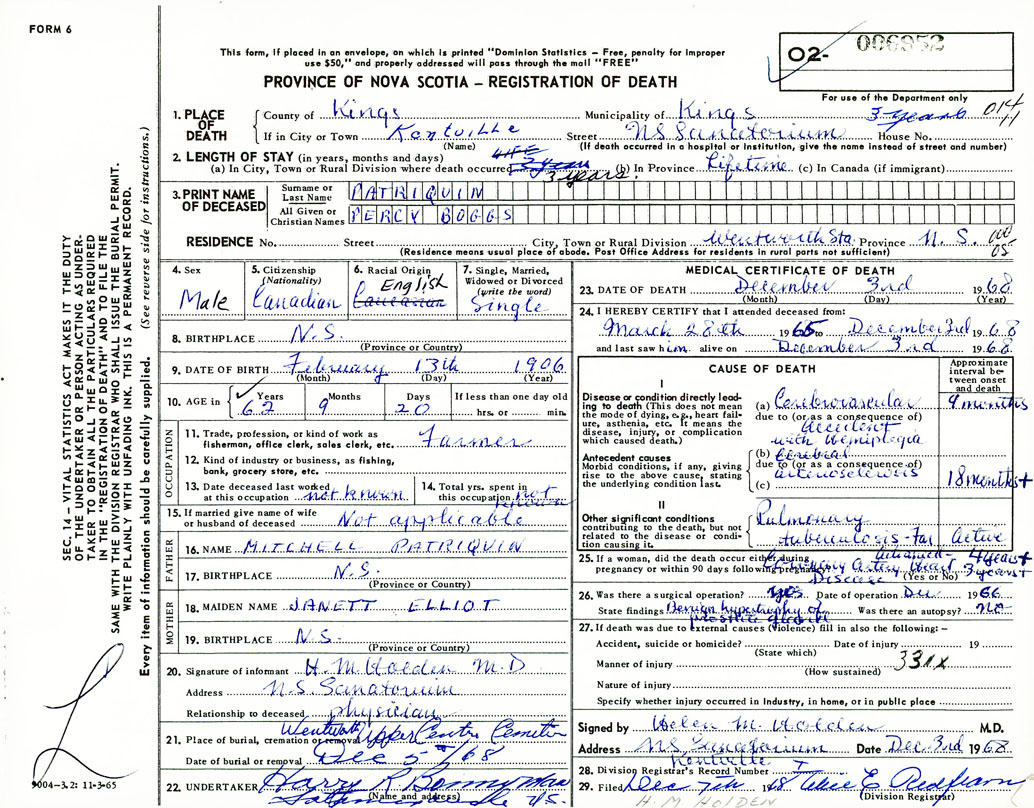 FORM 6
This form, if placed in an envelope, on which is printed "Dominion Statistics – Free, penalty for improper
use $50," and properly addressed will pass through the mail "FREE"
PROVINCE OF NOVA SCOTIA – REGISTRATION OF DEATH
O2- 006952
For use of the Department only
SEC. 14 – VITAL STATISTICS ACT MAKES IT THE DUTY
OF THE UNDERTAKER OR PERSON ACTING AS UNDER-
TAKER TO OBTAIN ALL THE PARTICULARS REQUIRED
IN THE "REGISTRATION OF DEATH" AND TO FILE THE
SAME WITH THE DIVISION REGISTRAR WHO SHALL ISSUE THE BURIAL PERMIT.
WRITE PLAINLY WITH UNFADING INK. THIS IS A PERMANENT RECORD.
Every item of information should be carefully supplied. (See reverse side for instructions.)
9004–3.2: 11-3-65
1. PLACE OF DEATH
County of Kings Municipality of Kings 3 years 014 11
If in City or Town Kentville Street NS Sanatorium House No.
(Name) (If death occurred in a hospital or institution, give the name instead of street and number)
2. LENGTH OF STAY (in years, months and days)
(a) In City, Town or Rural Division where death occurred LIFE 3 years 3 years. (b) In Province Lifetime (c) In Canada (if immigrant)
3. PRINT NAME OF DECEASED
Surname or Last Name PATRIQUIN
All Given or Christian Names PERCY BOGGS
RESIDENCE No. Street City, Town or Rural Division Wentworth Sta. Province N. S. 05
(Residence means usual place of abode. Post Office Address for residents in rural parts not sufficient)
4. Sex Male
5. Citizenship (Nationality) Canadian
6. Racial Origin English Caucasian
7. Single, Married, Widowed or Divorced (write the word) Single
8. BIRTHPLACE N.S.
(Province or Country)
9. DATE OF BIRTH February 13th 1906
(Month) (Day) (Year)
10. AGE in Years 62 Months 9 Days 20 If less than one day old hrs. or min.
OCCUPATION
11. Trade, profession, or kind of work as fisherman, office clerk, sales clerk, etc. Farmer
12. Kind of industry or business, as fishing, bank, grocery store, etc.
13. Date deceased last worked at this occupation not known
14. Total yrs. spent in this occupation not known
15. If married give name of wife or husband of deceased Not applicable
FATHER
16. NAME MITCHELL PATRIQUIN
17. BIRTHPLACE N.S.
(Province or Country)
MOTHER
18. MAIDEN NAME JANETT ELLIOT
19. BIRTHPLACE N.S.
(Province or Country)
20. Signature of informant H. M. Holden M.D
Address N.S. Sanatorium
Relationship to deceased physician
21. Place of burial, cremation or removal Wentworth Upper Centre Cemetery
Date of burial or removal Dec 5th/68
22. UNDERTAKER Harry R
(Name and address)
MEDICAL CERTIFICATE OF DEATH
23. DATE OF DEATH December 3rd 1968
(Month) (Day) (Year)
24. I HEREBY CERTIFY that I attended deceased from:
March 28th 1965 to December 3rd 1968
and last saw him alive on December 3rd 1968
CAUSE OF DEATH
Approximate interval between onset and death
I
Disease or condition directly leading to death (This does not mean the mode of dying, e.g., heart failure, asthenia, etc. It means the disease, injury, or complication which caused death.)
(a) Cerebrovascular 9 months
due to (or as a consequence of)
accident
with hemiplegia
Antecedent causes
Morbid conditions, if any, giving rise to the above cause, stating the underlying condition last.
(b) Cerebral
due to (or as a consequence of)
arteriosclerosis
(c) 18 months+
II
Other significant conditions
contributing to the death, but not related to the disease or condition causing it.
Pulmonary
tuberculosis - far Active
advanced - 4 years+
25. If a woman, did the death occur either during
pregnancy or within 90 days following pregnancy? (Yes or No)
Coronary Artery Heart 3 years+
Disease
26. Was there a surgical operation? yes Date of operation Dec. 1966
State findings Benign hypertrophy of prostate gland Was there an autopsy? no
27. If death was due to external causes (Violence) fill in also the following: –
Accident, suicide or homicide? Date of injury 19
(State which)
Manner of injury 331x
(How sustained)
Nature of injury
Specify whether injury occurred in Industry, in home, or in public place
Signed by Helen M. Holden M.D.
Address NS Sanatorium Date Dec 3rd 1968
Kentville
28. Division Registrar's Record Number
29. Filed Dec 7th 1968
(Division Registrar)
H M HOLDEN